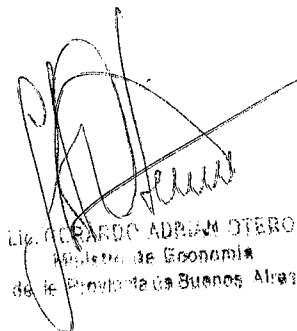 Lic. GERARDO ADRIAN OTERO
Ministro de Economía
de la Provincia de Buenos Aires